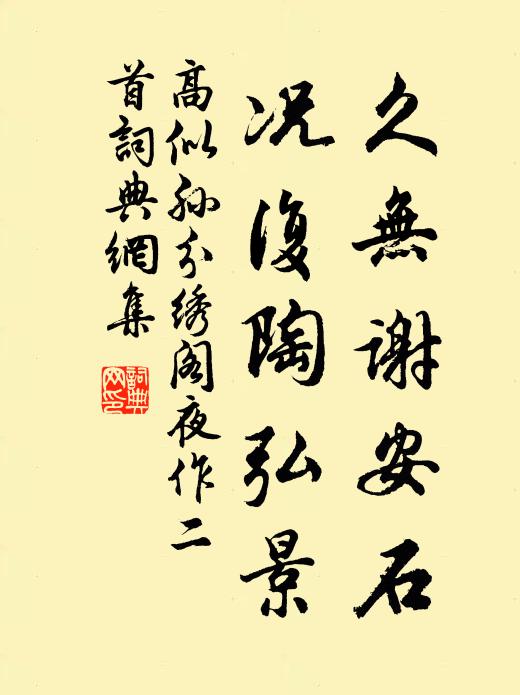 久無謝安石
况復陶弘景
高似孫分綉阁夜作二
首詞典網集
詞典
网印